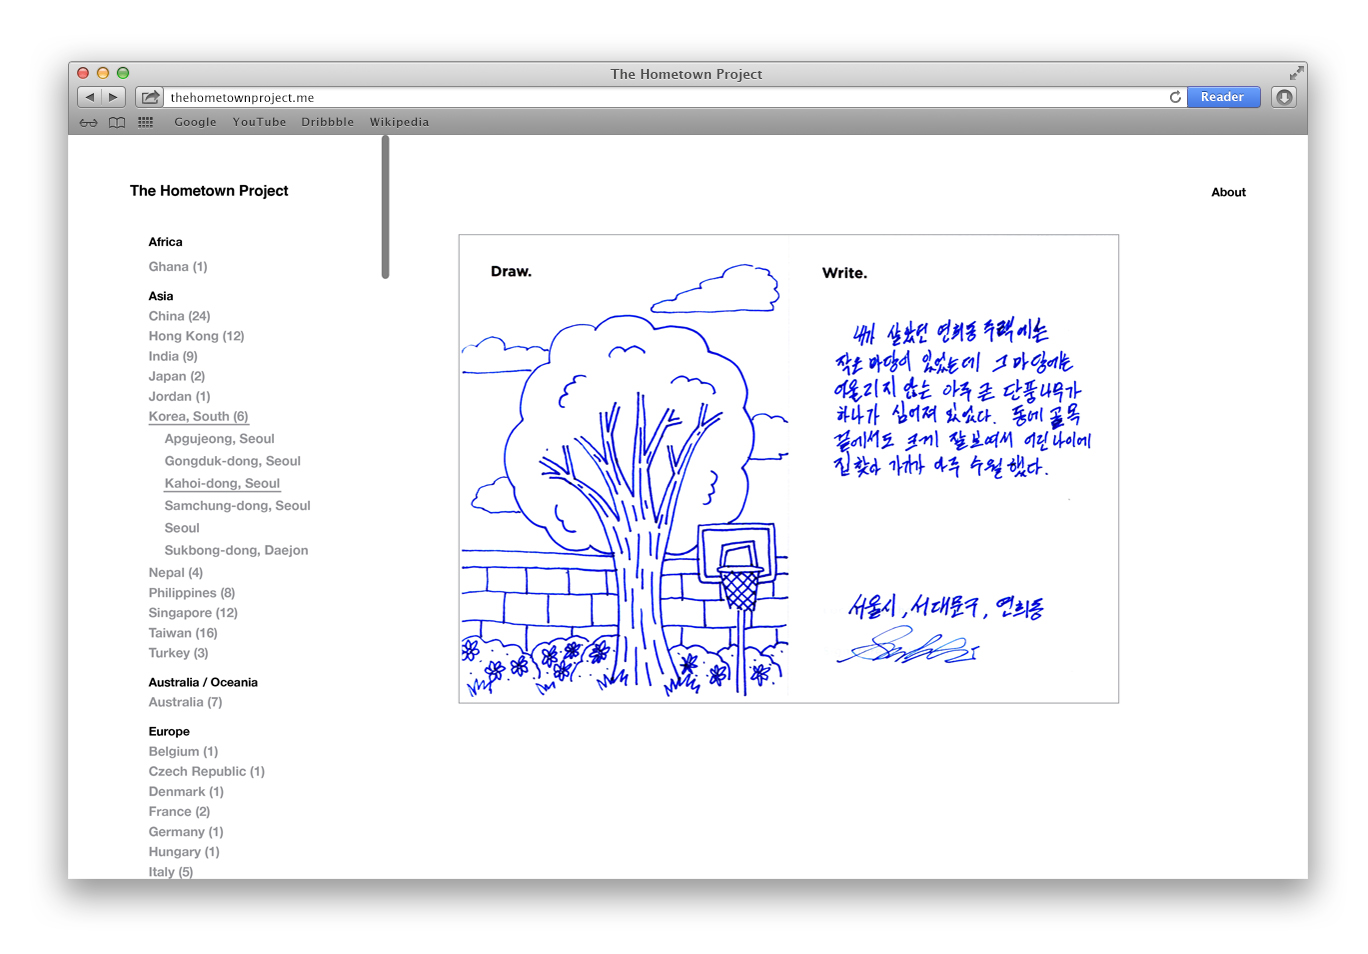 The Hometown Project
thehometownproject.me
Reader
Google YouTube Dribbble Wikipedia
The Hometown Project
About
Africa
Ghana (1)
Asia
China (24)
Hong Kong (12)
India (9)
Japan (2)
Jordan (1)
Korea, South (6)
Apgujeong, Seoul
Gongduk-dong, Seoul
Kahoi-dong, Seoul
Samchung-dong, Seoul
Seoul
Sukbong-dong, Daejon
Nepal (4)
Philippines (8)
Singapore (12)
Taiwan (16)
Turkey (3)
Australia / Oceania
Australia (7)
Europe
Belgium (1)
Czech Republic (1)
Denmark (1)
France (2)
Germany (1)
Hungary (1)
Italy (5)
Draw.
Write.
내가 살았던 연희동 주택에는
작은 마당이 있었는데 그 마당에는
어울리지 않는 아주 큰 단풍나무가
하나가 심어져 있었다. 동네 골목
끝에서도 크게 잘 보여서 어린 나이에
집 찾아 가기가 아주 수월했다.
서울시, 서대문구, 연희동